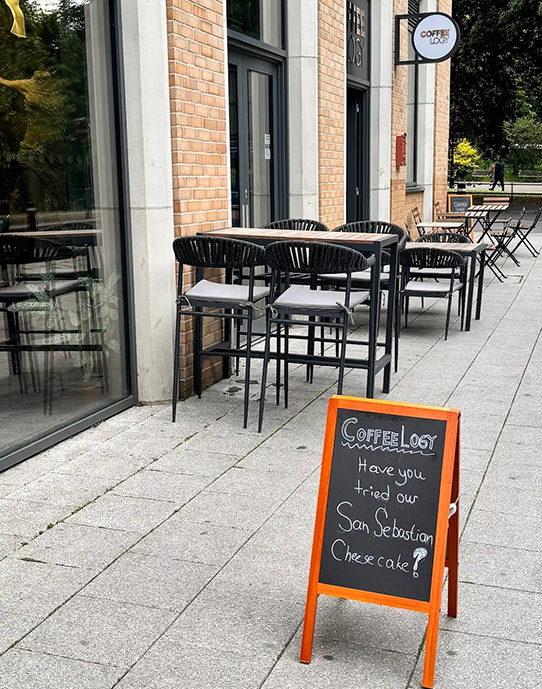 COFFEE
LOGY
COFFEE
LOGY
COFFEELOGY
Have you
tried our
San Sebastian
Cheesecake?